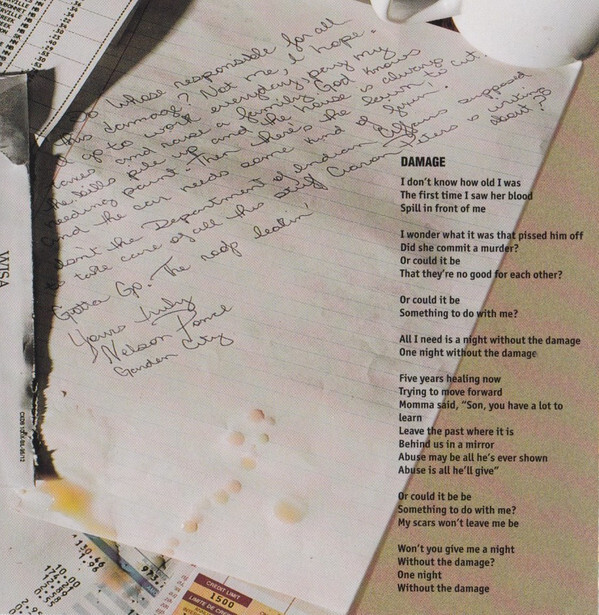 So whose responsible for all
this damage? Not me, I hope.
I go to work everyday, pay my
taxes and have a family, God knows
the bills pile up and the house is always
needing paint. Then there's the lawn to cut
and the car needs some kind of fixin'.
Isn't the Department of Indian Affairs supposed
to take care of all this stuff Ciaran Peters is writing about?
Gotta Go. The roof leakin'
Yours truly
Nelson Ponce
Garden City
DAMAGE
I don't know how old I was
The first time I saw her blood
Spill in front of me
I wonder what it was that pissed him off
Did she commit a murder?
Or could it be
That they're no good for each other?
Or could it be
Something to do with me?
All I need is a night without the damage
One night without the damage
Five years healing now
Trying to move forward
Momma said, "Son, you have a lot to
learn
Leave the past where it is
Behind us in a mirror
Abuse may be all he's ever shown
Abuse is all he'll give"
Or could it be be
Something to do with me?
My scars won't leave me be
Won't you give me a night
Without the damage?
One night
Without the damage
CREDIT LIMIT
1500
LIMITE DE CREDIT